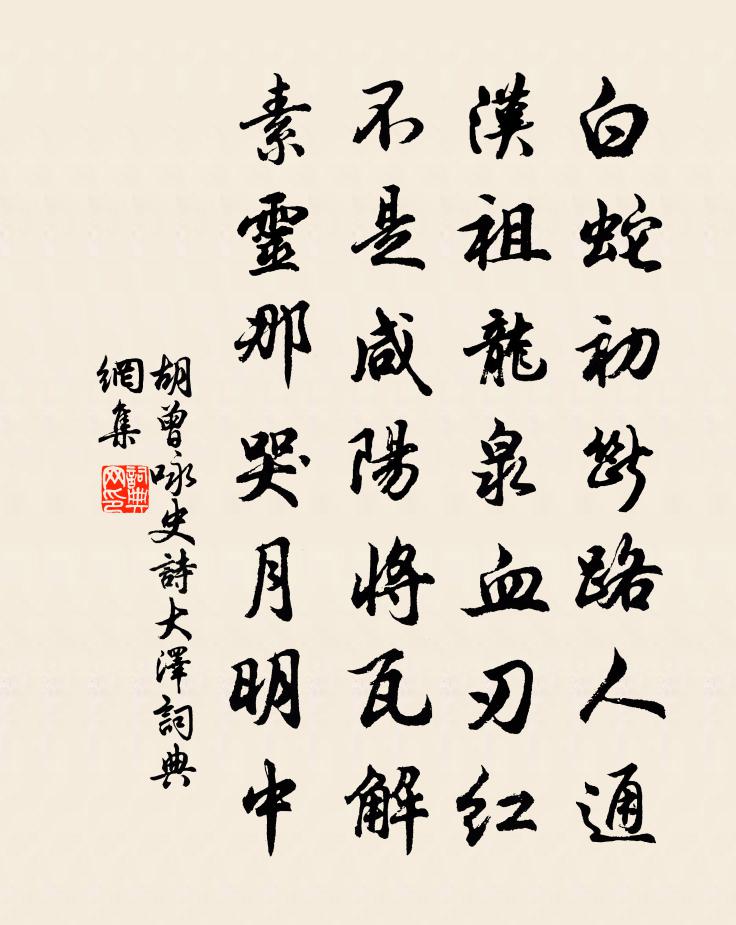 白蛇初斷路人通
漢祖龍泉血刃紅
不是咸陽將瓦解
素靈那哭月明中
胡曾咏史詩大澤詞典
網集
詞典
网印